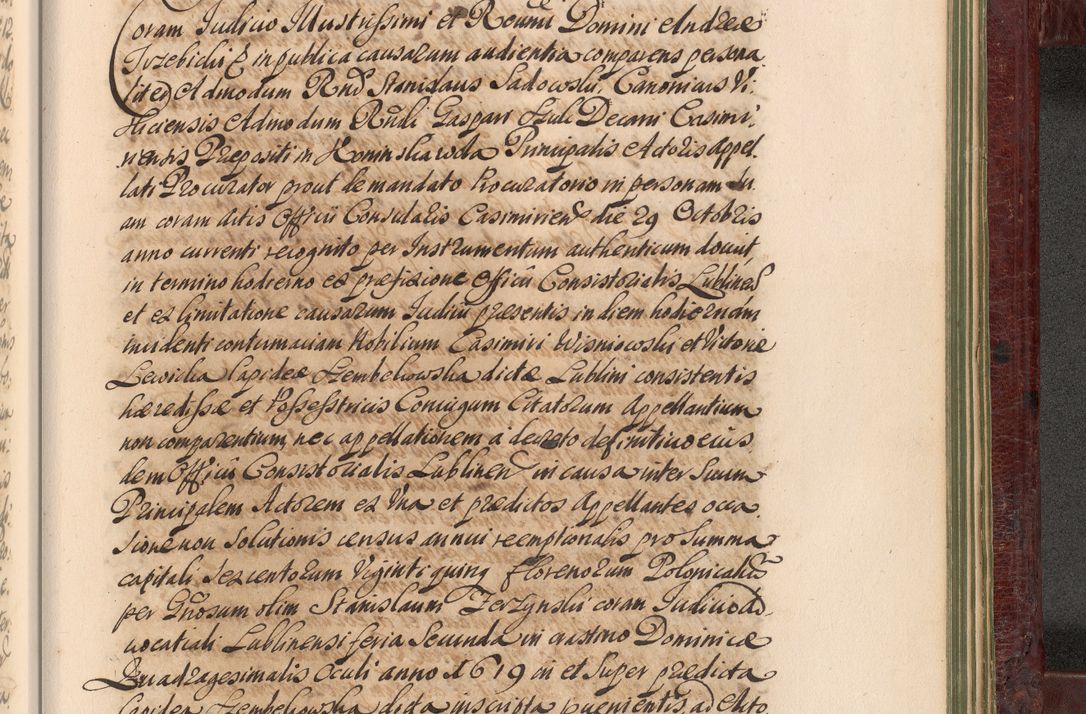 Coram Iudicio Illustrissimi et Rev̄mi Domini Andreæ
Trzebicki & in publica causarum audientia comparens persona
liter Admodum Rnd Stanislaus Sadowski, Canonicus Vi
sliciensis Admodum Rndi Gaspari Decani Casimi,
riensis Præpositi in Koninskawola Principalis Actoris Appel
lati Procurator prout de mandato Procuratorio in personam su
am coram actis Officii Consularis Casimirien die 29 Octobris
anno currenti recognito per Instrumentum authenticum docuit,
in termino hodierno ex præfixione Officii Consistorialis Lublinen
et ex limitatione causarum Iudicii præsentis in diem hodiernam
incidenti contumaciam Nobilium Casimiri Wisniowski et Victoriæ
Lewicka lapideæ Szembekowska dictæ Lublini consistentis
hæredissæ et Possesstricis Coniugum Citatorum Appellantium
non comparentium, nec appellationem a decreto definitivo eius
dem Officii Consistorialis Lublinen in causa inter suum
Principalem Actorem ex Una et prædictos Appellantes occa
sione non solutionis census annui reemptionalis pro summa
capitali sexcentorum Viginti quinq florenorum Polonicaliū
per Gnosum olim Stanislaum coram Iudicio Ad
vocatiali Lublinensi feria secunda in crastino Dominicæ
Quadragesimalis Oculi anno 1619 in et super prædicta
lapidea Szembekowska dicta inscripta provenientis, ad Acto